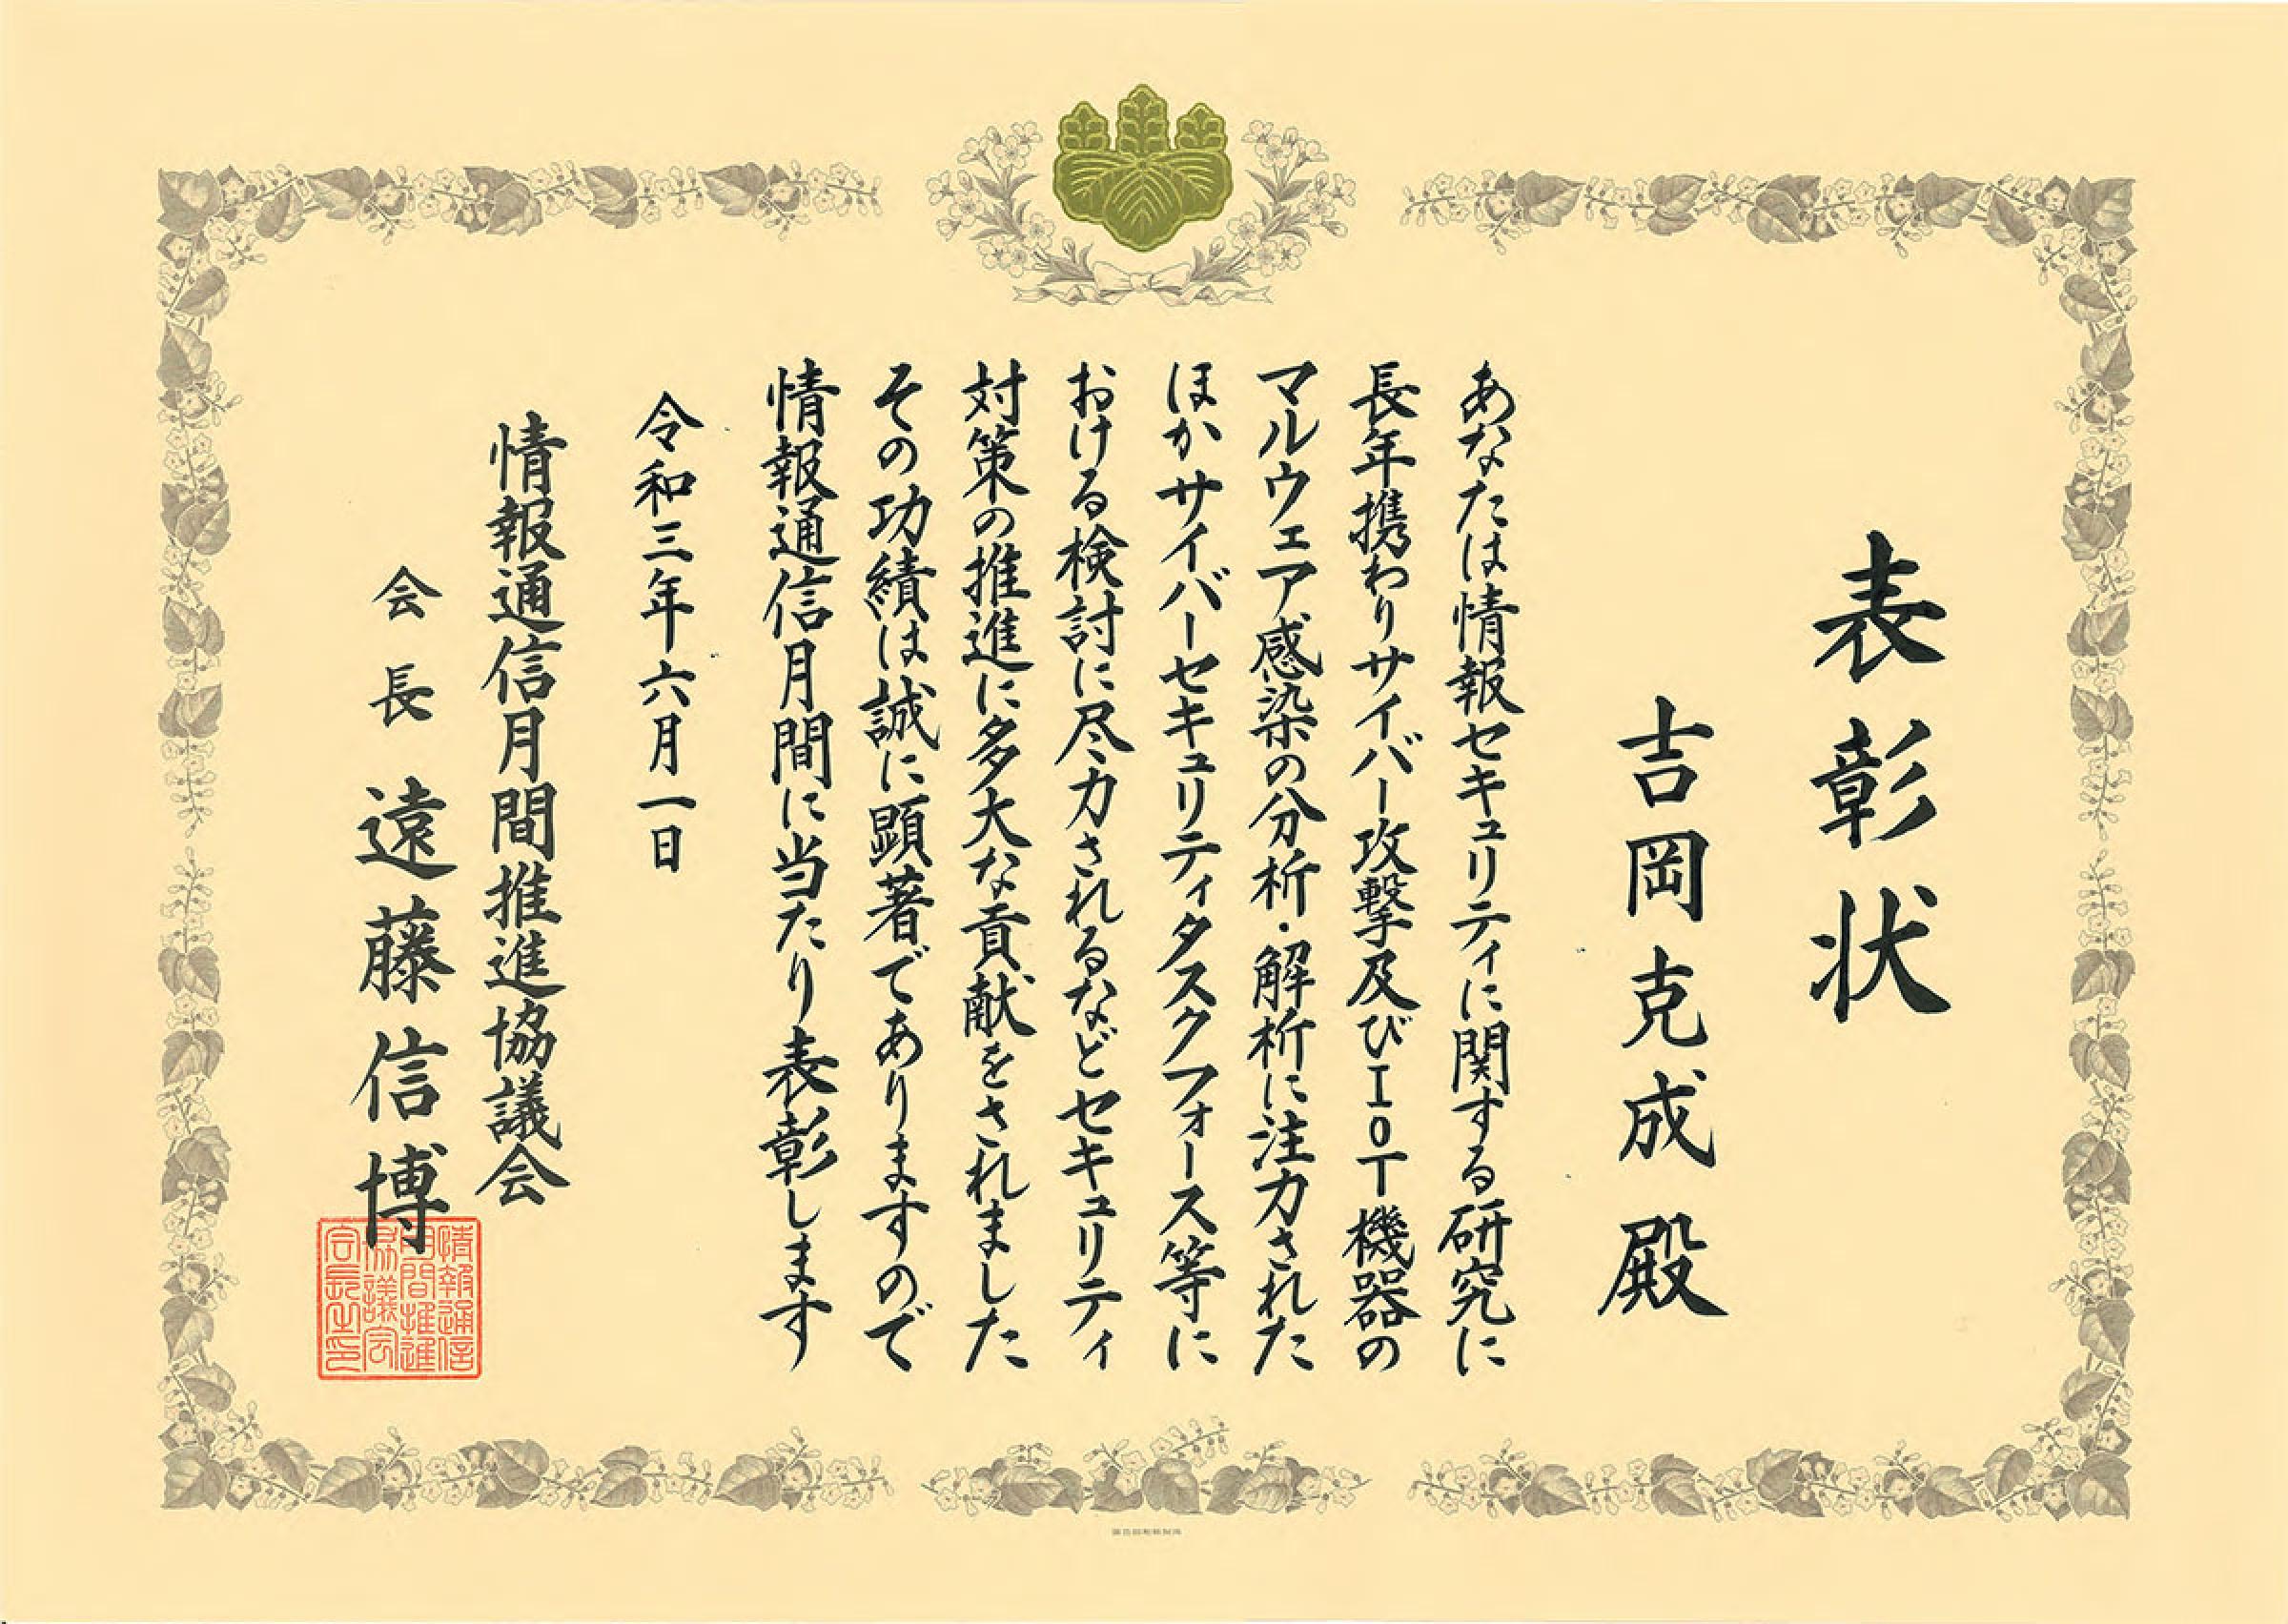 表彰状
吉岡克成殿
あなたは情報セキュリティに関する研究に
長年携わりサイバー攻撃及びIoT機器の
マルウェア感染の分析・解析に注力された
ほかサイバーセキュリティタスクフォース等に
おける検討に尽力されるなどセキュリティ
対策の推進に多大な貢献をされました
その功績は誠に顕著でありますので
情報通信月間に当たり表彰します
令和三年六月一日
情報通信月間推進協議会
会長 遠藤信博
情報通信
月間推進
協議会
会長之印